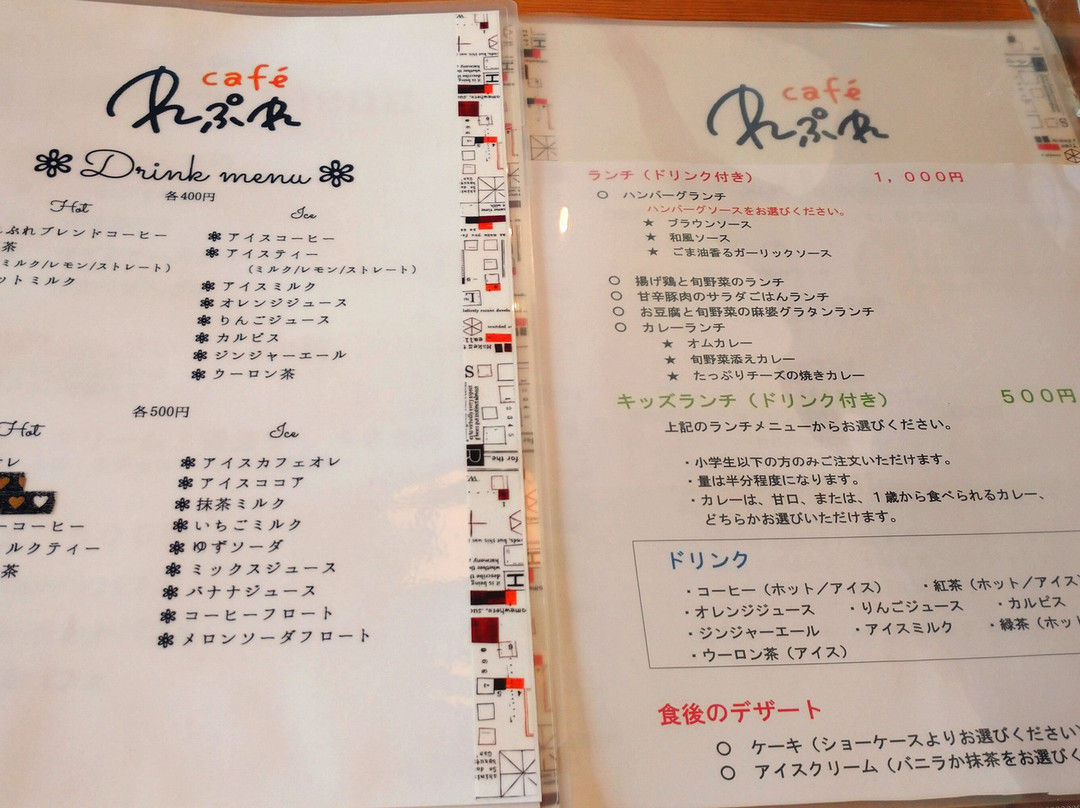 café
れぷれ
Drink menu
各400円
Hot
ぷれブレンドコーヒー
茶
ミルク/レモン/ストレート)
ットミルク
Ice
アイスコーヒー
アイスティー
(ミルク/レモン/ストレート)
アイスミルク
オレンジジュース
りんごジュース
カルピス
ジンジャーエール
ウーロン茶
各500円
Hot
オレ
ーコーヒー
ルクティー
茶
Ice
アイスカフェオレ
アイスココア
抹茶ミルク
いちごミルク
ゆずソーダ
ミックスジュース
バナナジュース
コーヒーフロート
メロンソーダフロート
café
れぷれ
ランチ（ドリンク付き） 1，000円
○ ハンバーグランチ
ハンバーグソースをお選びください。
★ ブラウンソース
★ 和風ソース
★ ごま油香るガーリックソース
○ 揚げ鶏と旬野菜のランチ
○ 甘辛豚肉のサラダごはんランチ
○ お豆腐と旬野菜の麻婆グラタンランチ
○ カレーランチ
★ オムカレー
★ 旬野菜添えカレー
★ たっぷりチーズの焼きカレー
キッズランチ（ドリンク付き） 500円
上記のランチメニューからお選びください。
・小学生以下の方のみご注文いただけます。
・量は半分程度になります。
・カレーは、甘口、または、1歳から食べられるカレー、
どちらかお選びいただけます。
ドリンク
・コーヒー（ホット／アイス） ・紅茶（ホット／アイス）
・オレンジジュース ・りんごジュース ・カルピス
・ジンジャーエール ・アイスミルク ・緑茶（ホッ
・ウーロン茶（アイス）
食後のデザート
○ ケーキ（ショーケースよりお選びください）
○ アイスクリーム（バニラか抹茶をお選びく